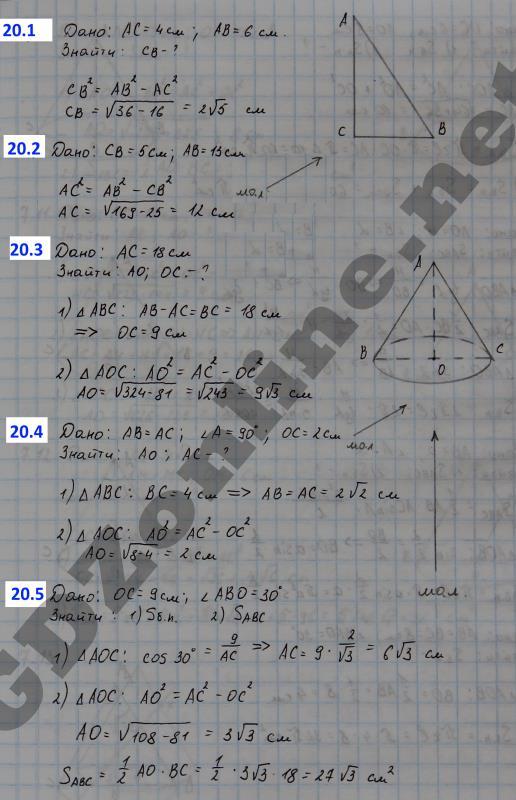 20.1 Дано: AC = 4 см ; AB = 6 см.
Знайти: CB - ?
CB² = AB² - AC²
CB = √36-16 = 2√5 см
A
C
B
20.2 Дано: CB = 5 см; AB = 13 см
мал.
AC² = AB² - CB²
AC = √169-25 = 12 см
20.3 Дано: AC = 18 см
Знайти: AO; OC - ?
1) △ ABC: AB - AC = BC = 18 см
=> OC = 9 см
2) △ AOC: AO² = AC² - OC²
AO = √324-81 = √243 = 9√3 см
A
B
O
C
20.4 Дано: AB = AC ; ∠A = 90° ; OC = 2 см
мал.
Знайти: AO ; AC - ?
1) △ ABC: BC = 4 см => AB = AC = 2√2 см
2) △ AOC: AO² = AC² - OC²
AO = √8-4 = 2 см
мал.
20.5 Дано: OC = 9 см; ∠ABO = 30°
Знайти : 1) Sб.п. 2) SABC
1) △ AOC: cos 30° = 9/AC => AC = 9 · 2/√3 = 6√3 см
2) △ AOC: AO² = AC² - OC²
AO = √108-81 = 3√3 см
SABC = 1/2 AO · BC = 1/2 · 3√3 · 18 = 27√3 см²
GDZonline.net